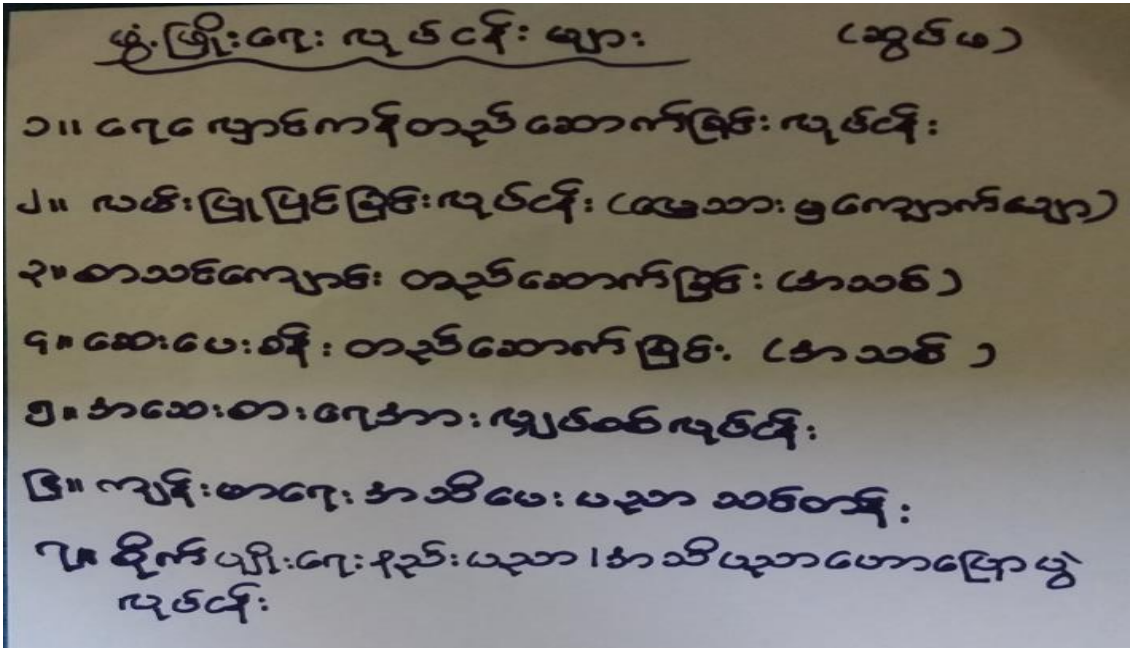 ဖွံ့ဖြိုးရေး လုပ်ငန်းများ (ဆွပ်ဖ)
၁။ ရေလှောင်ကန်တည်ဆောက်ခြင်းလုပ်ငန်း
၂။ လမ်းပြုပြင်ခြင်းလုပ်ငန်း (မြေသားမှကျောက်ချော)
၃။ စာသင်ကျောင်း တည်ဆောက်ခြင်း (အသစ်)
၄။ ဆေးပေးခန်း တည်ဆောက်ခြင်း (အသစ်)
၅။ အသေးစားရေအားလျှပ်စစ်လုပ်ငန်း
၆။ ကျန်းမာရေး အသိပေးပညာ သင်တန်း
၇။ စိုက်ပျိုးရေးနည်းပညာ၊အသိပညာဟောပြောပွဲ
လုပ်ငန်း